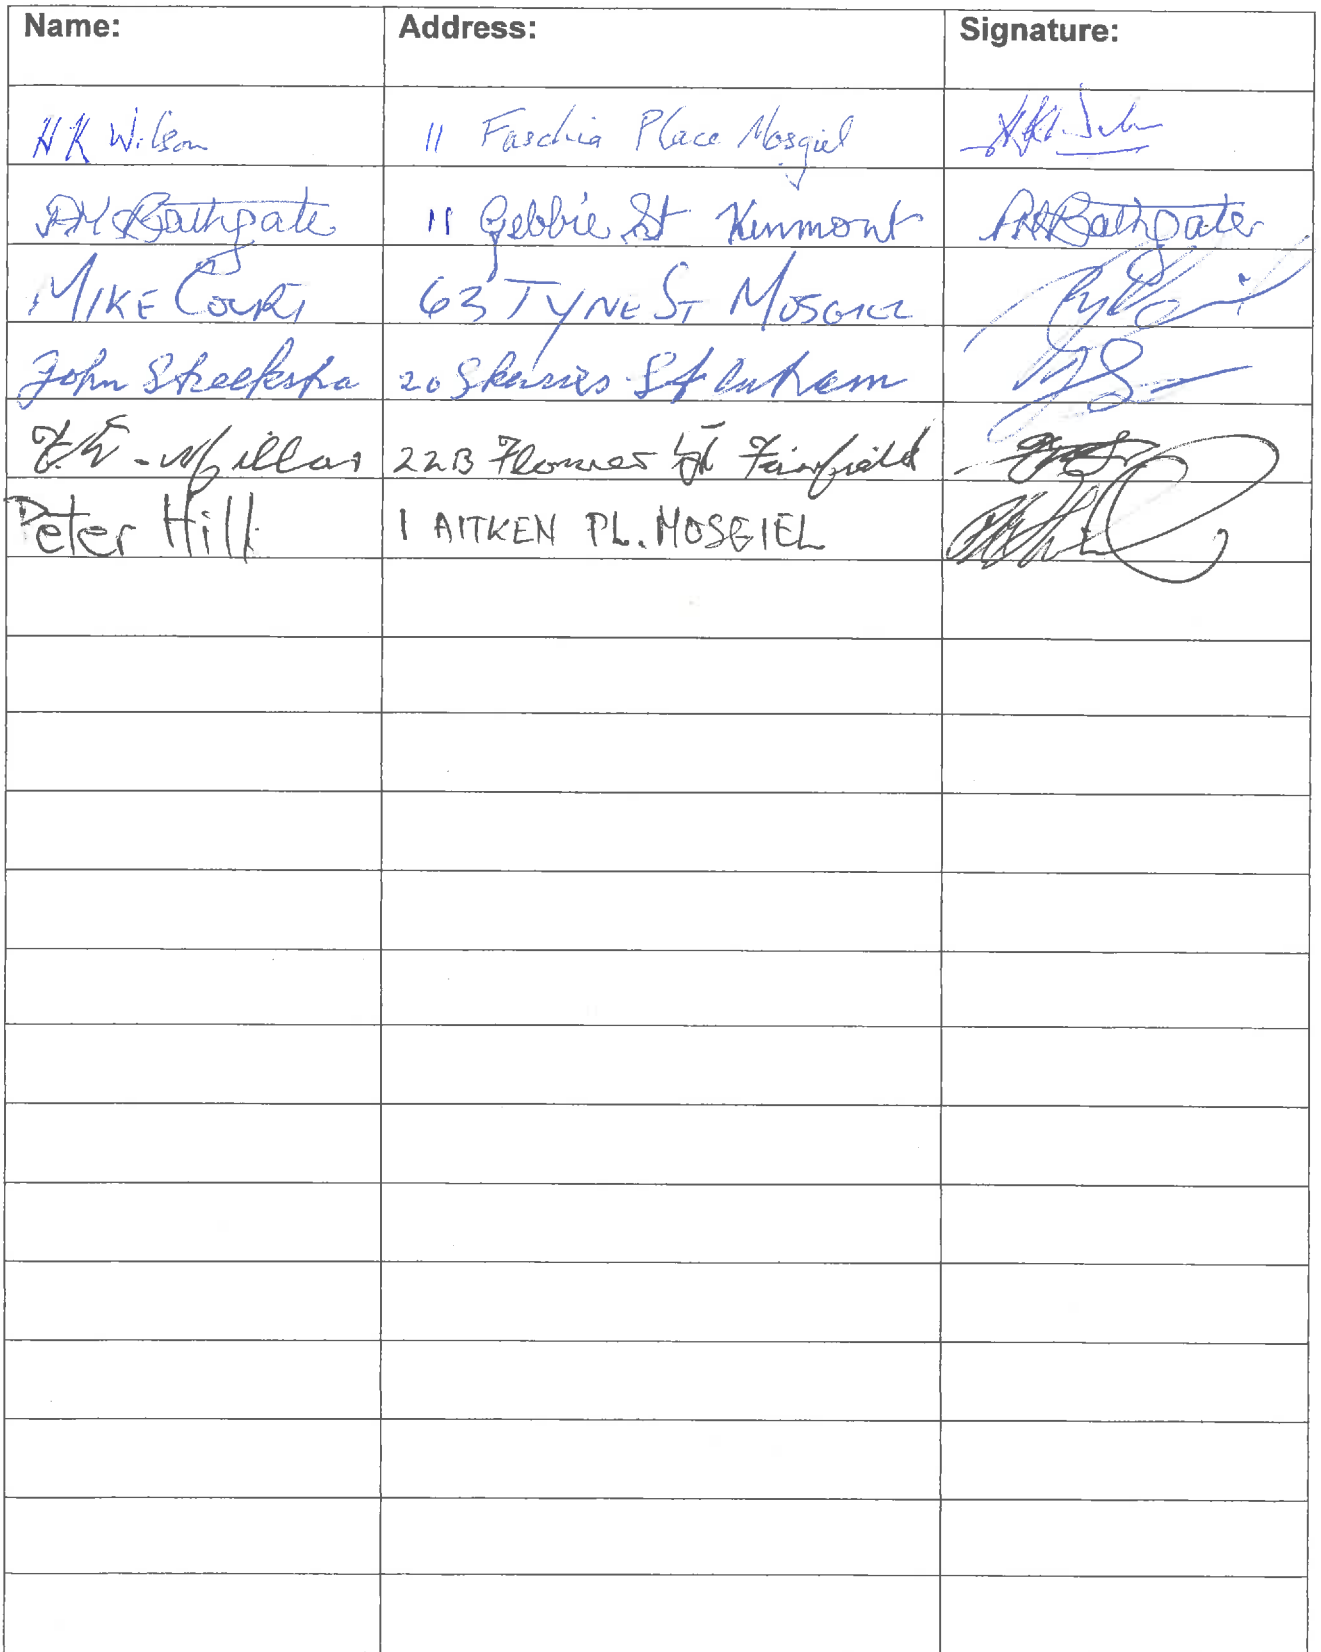 Name: Address: Signature:
H K Wilson 11 Faschia Place Mosgiel
Bathgate 11 Gebbie St Kinmont A M Bathgate
MIKE COURT 63 TYNE ST MOSGIEL
John Streekstra 20 St
Millar 22B Flower St Fairfield
Peter Hill 1 AITKEN PL. MOSGIEL